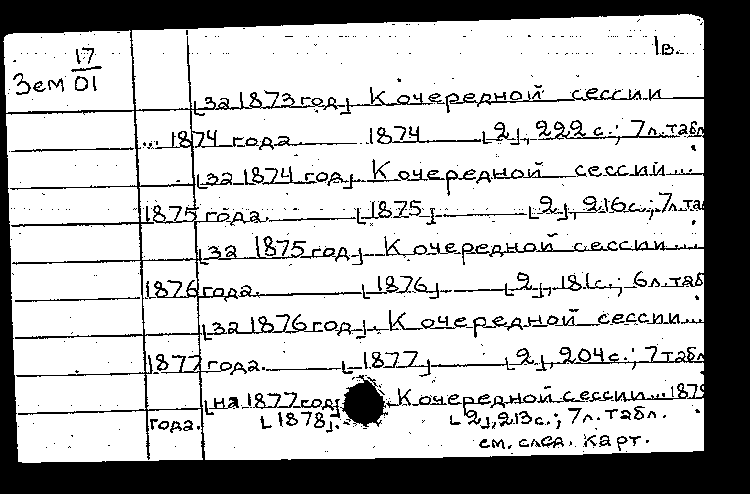 1в.
Зем 17/01
[за 1873 год] К очередной сессии
... 1874 года. 1874 [2], 222 с.; 7 л. табл
[за 1874 год] К очередной сессии ...
1875 года. [1875] [2], 216 с.; 7 л. таб
[за 1875 год] К очередной сессии ...
1876 года. [1876] [2], 181 с.; 6 л. табл
[за 1876 год]. К очередной сессии ...
1877 года. [1877] [2], 204 с.; 7 табл
[на 1877 год] К очередной сессии ... 1878
года. [1878]. [2], 213 с.; 7 л. табл.
см. след. карт.